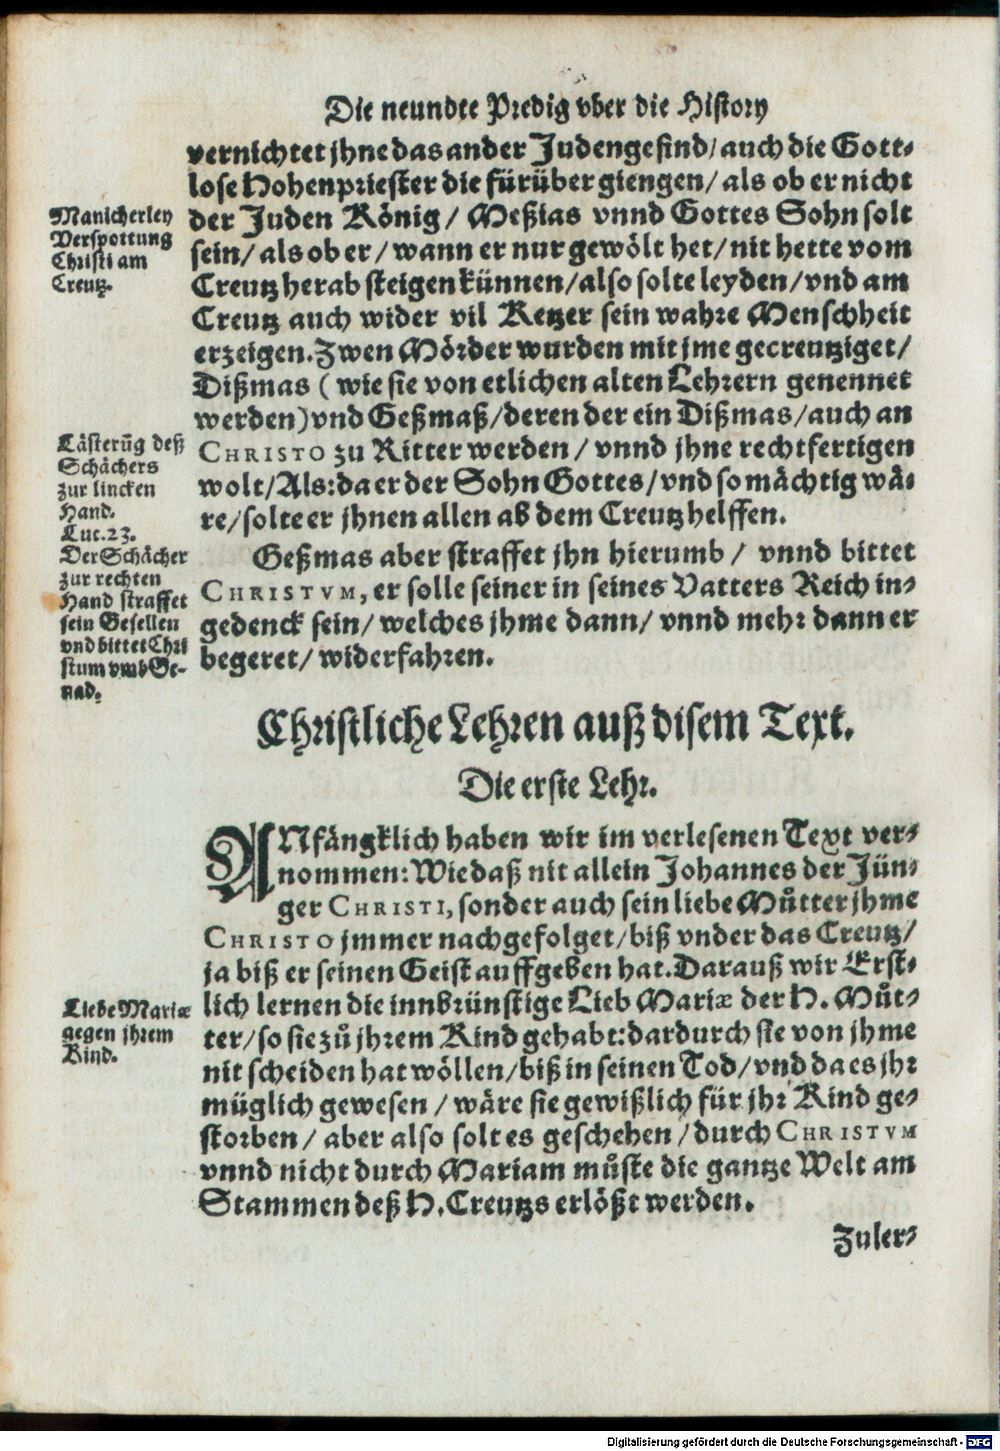 Die neundte Predig vber die History
vernichtet jhne das ander Judengesind/ auch die Gott-
lose Hohenpriester die fürüber giengen/ als ob er nicht
der Juden König/ Meßias vnnd Gottes Sohn solt
sein/ als ob er/ wann er nur gewölt het/ nit hette vom
Creutz herab steigen künnen/ also solte leyden/ vnd am
Creutz auch wider vil Ketzer sein wahre Menschheit
erzeigen. Zwen Mörder wurden mit jme gecreutziget/
Dißmas (wie sie von etlichen alten Lehrern genennet
werden) vnd Geßmaß/ deren der ein Dißmas/ auch an
CHRISTO zu Ritter werden/ vnnd jhne rechtfertigen
wolt/ Als: da er der Sohn Gottes/ vnd so mächtig wä-
re/ solte er jhnen allen ab dem Creutz helffen.
Geßmas aber straffet jhn hierumb/ vnnd bittet
CHRISTVM, er solle seiner in seines Vatters Reich in-
gedenck sein/ welches jhme dann/ vnnd mehr dann er
begeret/ widerfahren.
Manicherley
Verspottung
Christi am
Creutz.
Lästerūg deß
Schächers
zur lincken
Hand.
Luc. 23.
Der Schächer
zur rechten
Hand straffet
sein Gesellen
vnd bittet Chri
stum vmb Ge-
nad.
Christliche Lehren auß disem Text.
Die erste Lehr.
ANfängklich haben wir im verlesenen Text ver-
nommen: Wie daß nit allein Johannes der Jün-
ger CHRISTI, sonder auch sein liebe Můtter jhme
CHRISTO jmmer nachgefolget/ biß vnder das Creutz/
ja biß er seinen Geist auffgeben hat. Darauß wir Erst-
lich lernen die innbrünstige Lieb Mariæ der H. Můt-
ter/ so sie zů jhrem Kind gehabt: dardurch sie von jhme
nit scheiden hat wöllen/ biß in seinen Tod/ vnd da es jhr
müglich gewesen/ wäre sie gewißlich für jhr Kind ge-
storben/ aber also solt es geschehen/ durch CHRISTVM
vnnd nicht durch Mariam můste die gantze Welt am
Stammen deß H. Creutzs erlößt werden.
Liebe Mariæ
gegen jhrem
Kind.
Zuler-
Digitalisierung gefördert durch die Deutsche Forschungsgemeinschaft - DFG